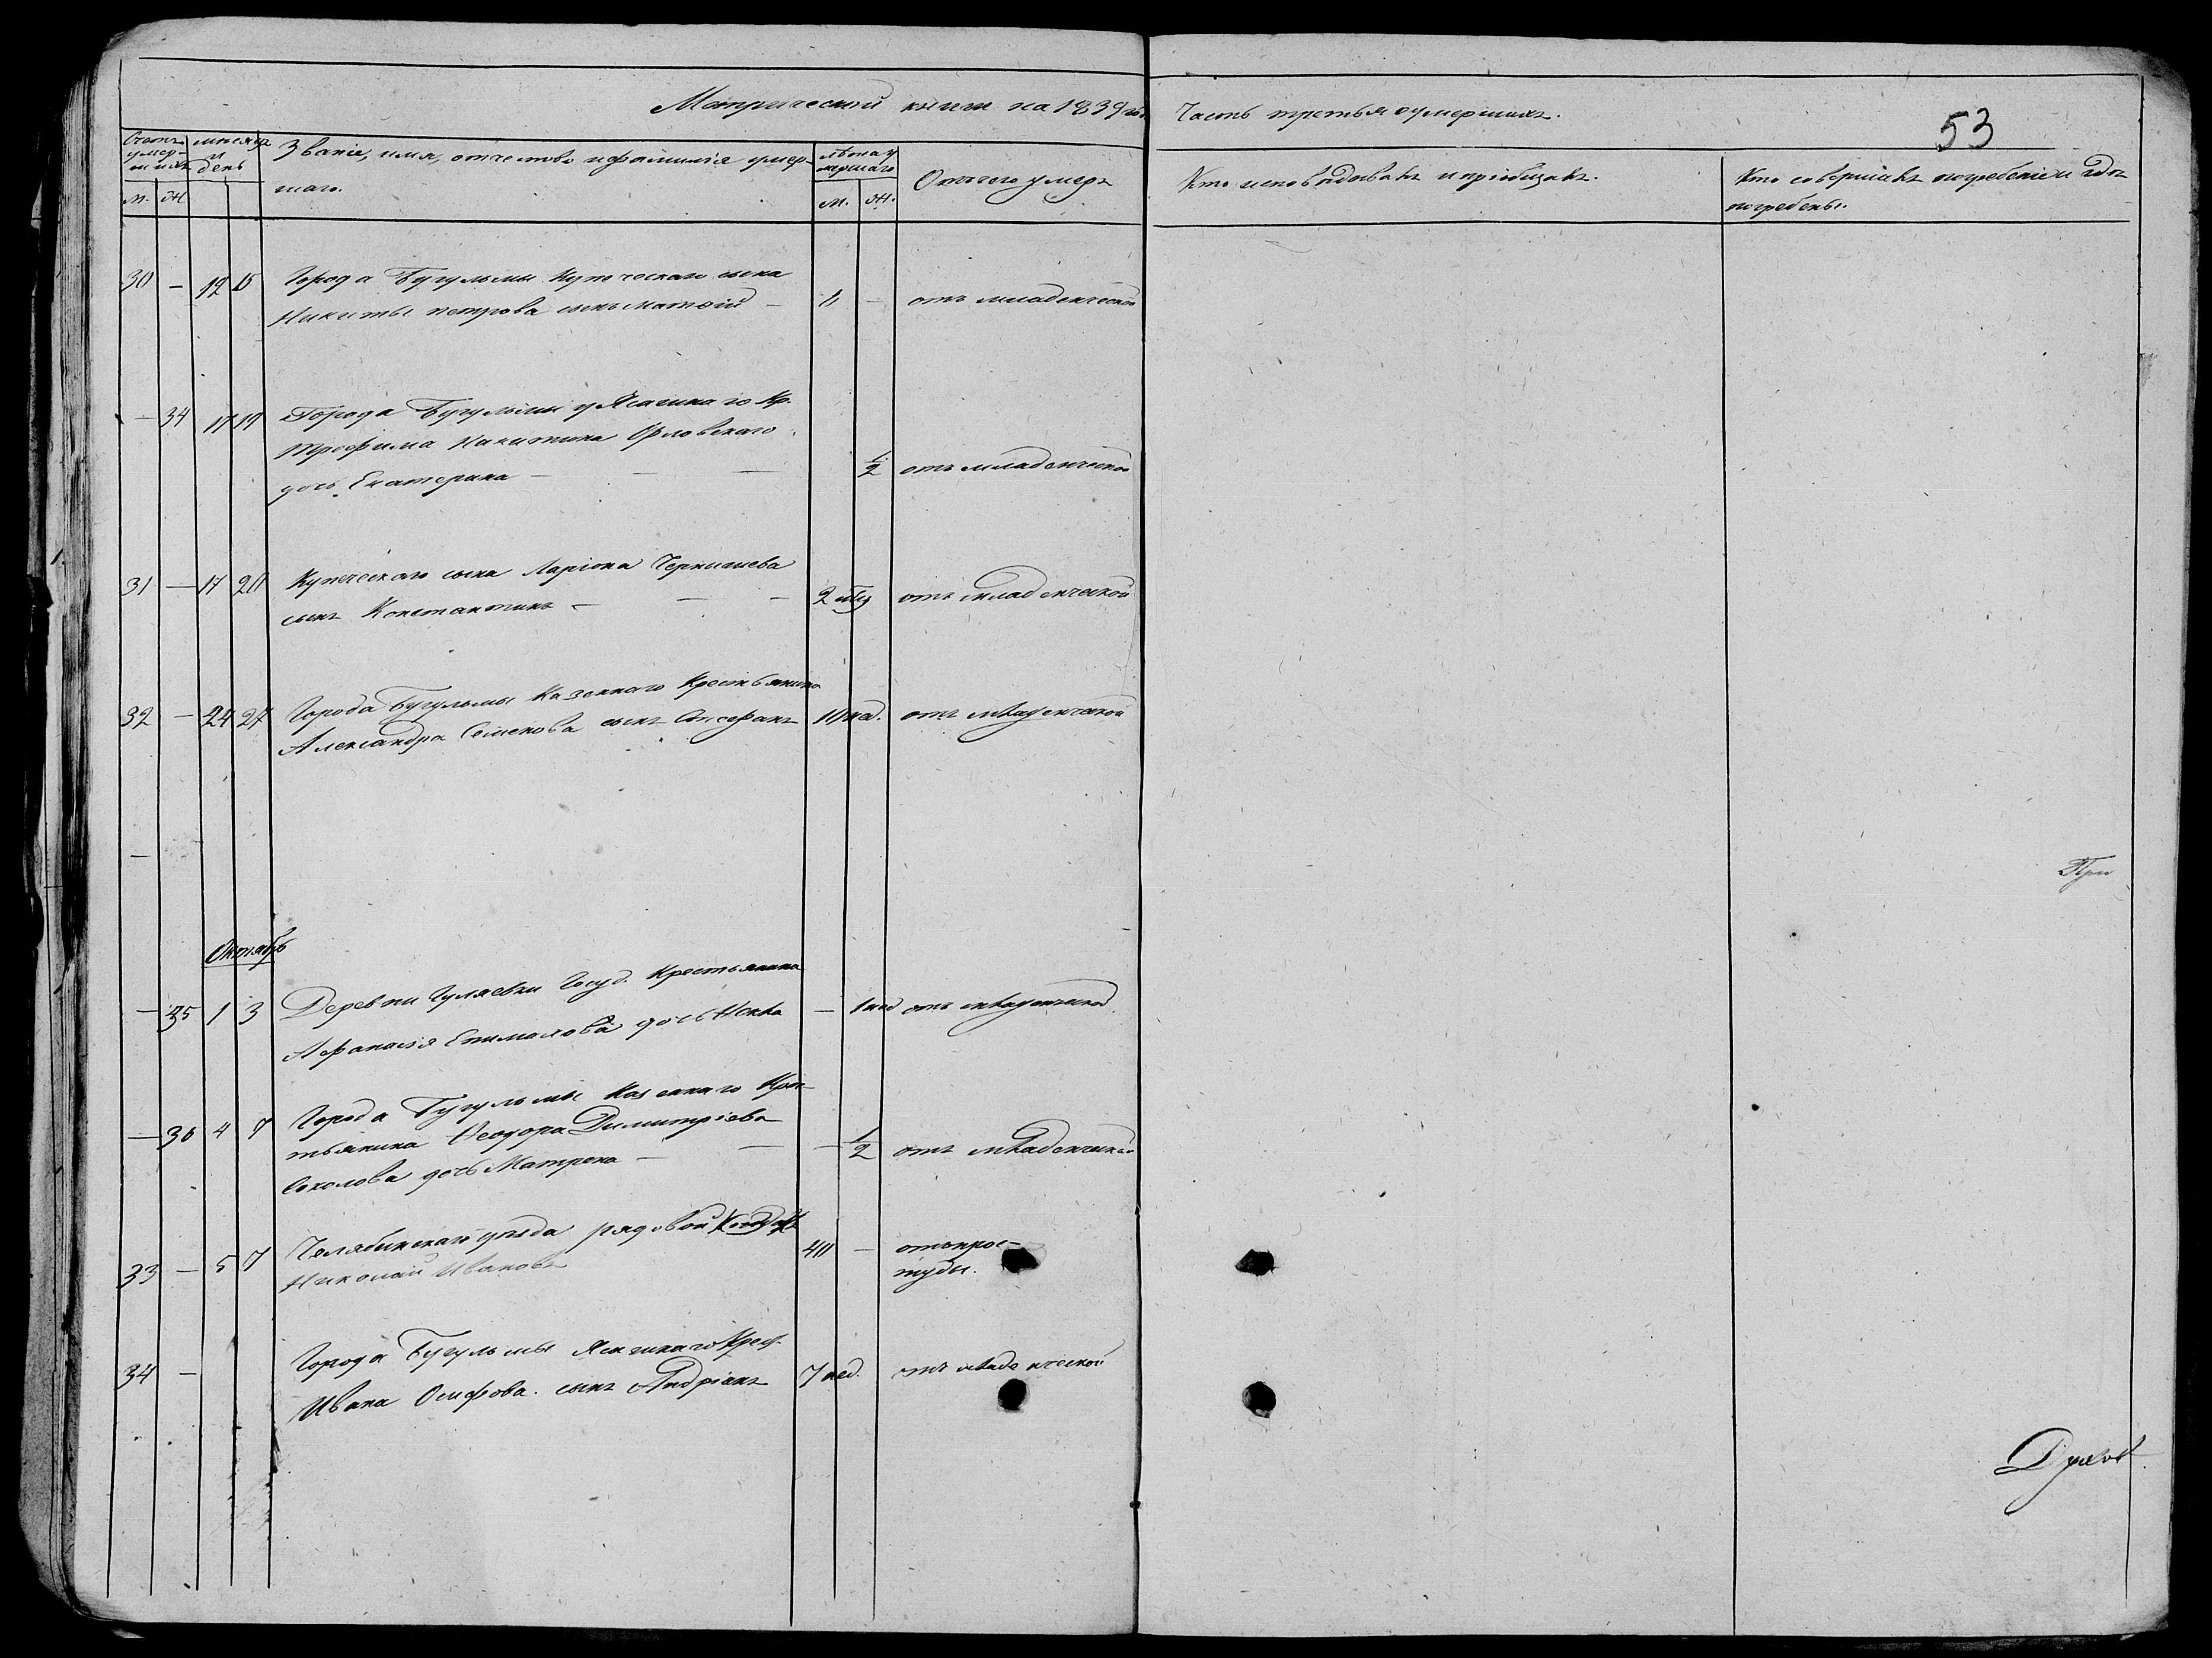 Метрической книги на 1839 годъ Часть третья о умершихъ.
53
Счетъ умер-шихъ
мѣсяцъ и день
Званіе, имя, отчество и фамилія умер-
шаго.
лѣта у
мершаго
Отъ чего умеръ
Кто исповѣдывалъ и пріобщалъ.
Кто совершалъ погребеніе и гдѣ
погребены.
м. ж.
м. ж.
30 — 12 15 Города Бугульмы Купеческаго сына
Никиты петрова сынъ матѳій — — отъ младенческой
— 34 17 19 Города Бугульмы у Ясашнаго Кр.
трофима Никитина Орловскаго
дочь Екатерина — — — 1/2 отъ младенческой
31 — 17 20 Купеческаго сына Ларіона Чернышева
сынъ Константинъ — — — 2 отъ младенческой
32 — 24 27 Города Бугульмы Казеннаго Крестьянина
Александра Семенова сынъ Стефанъ нед. отъ младенческой
—
При
Октябрь
— 35 1 3 Деревни Гуляевки Госуд. Крестьянина
Афанасія дочь — 1 нед отъ младенческой
— 36 4 7 Города Бугульмы Казеннаго Крес-
тьянина Ѳеодора Димитріева
Соколова дочь Матрена — — — 1/2 отъ младенческой
33 — 5 7 Челябинскаго уѣзда рядовой
Николай Ивановъ 40 — отъ прос-
туды.
34 — Города Бугульмы Ясашнаго Крест.
Ивана Осифова. сынъ Андріанъ 7 нед. отъ младенческой